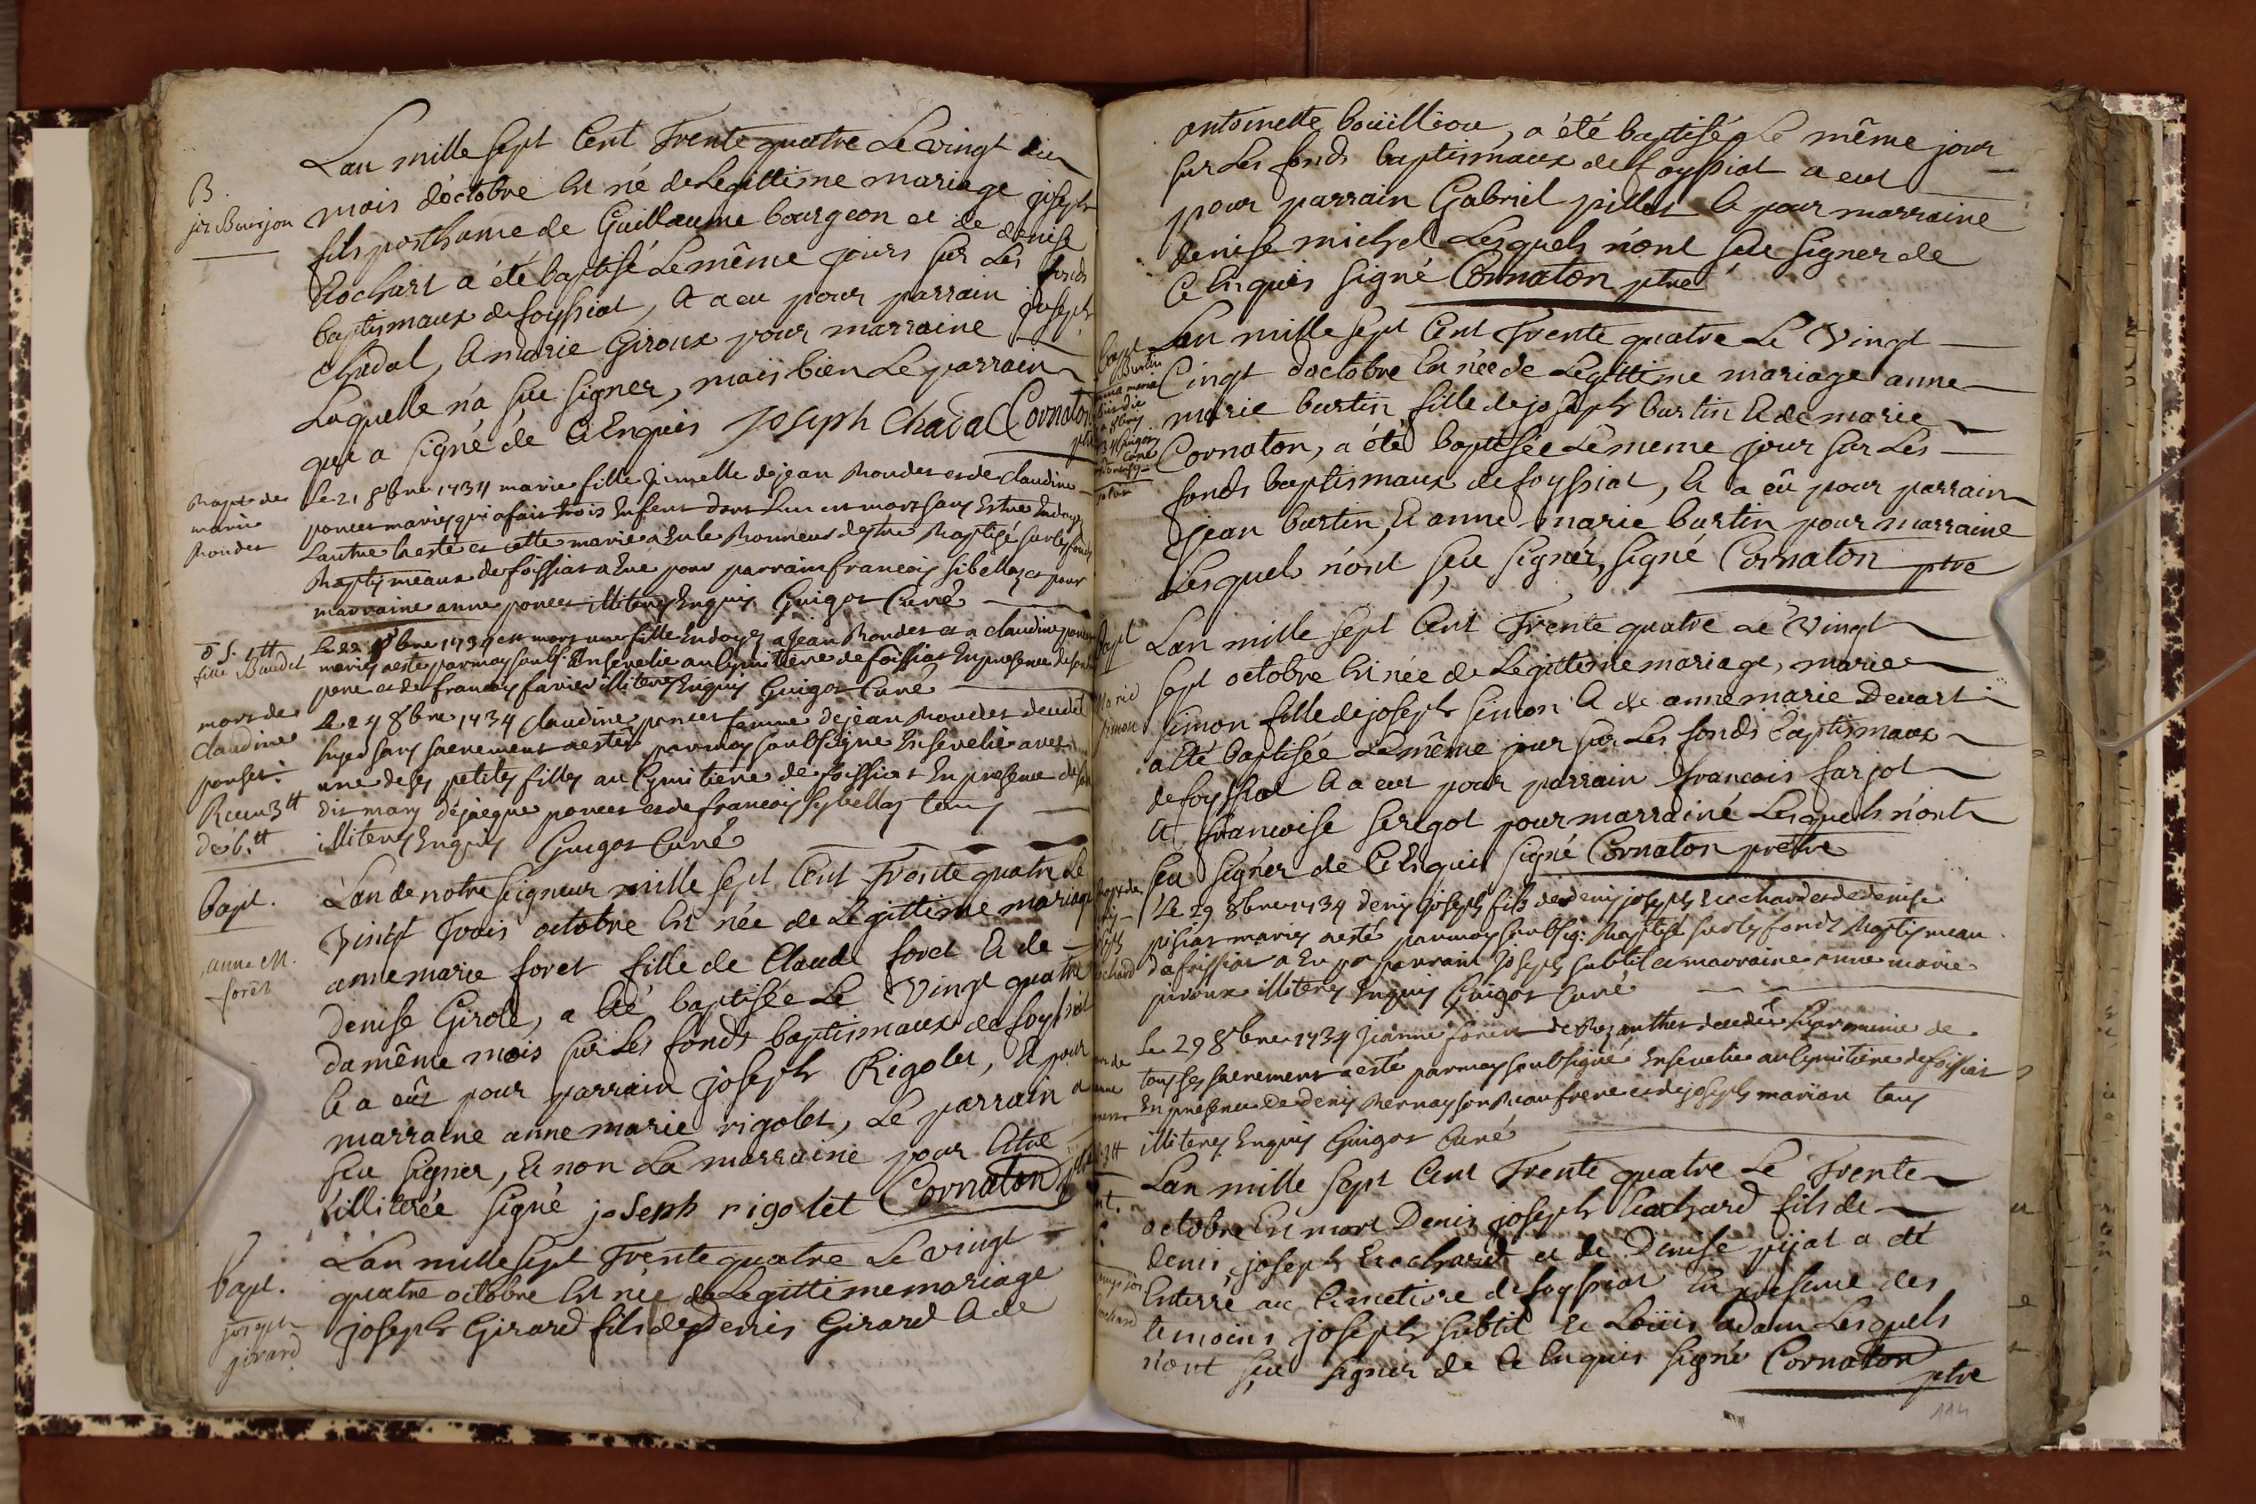 B.
jos Bourjon
L'an mille sept Cent Trente quatre Le vingt du
mois d'octobre Est né de Legittime mariage joseph
fils posthume de Guillaume bourgeon et de denise
Erochart a été baptisé Le même jour sur Les fonds
baptismaux de foyssiat, Et a eu pour parrain joseph
Chadal, Et marie Giroux pour marraine
Laquelle n'a sçu signer, mais bien Le parrain
qui a signé de Ce Enquis Joseph Chadal Cornaton
ptre
Bapt de
marie
Boudet
Le 21 8bre 1734 marie fille Jumelle de jean Boudet et de Claudine
poncet mariez qui a fait trois Enfent dont L'un est mort sans Estre Endoyé
L'autre Leste et cette marie a Eu le Bonneur destre Baptisé sur les fonds
Baptismeaux de foissiat a Eue pour parrain francois sibellas et pour
marraine anne poncet illiterez Enquis Guigot Curé
fille Boudet
Le 22 8bre 1734 est mort une fille Endoyez a Jean Boudet et a claudine poncet
mariez aesté par moy soubs: Ensevelie au Cymitiere de foissiat En presence de son
pere et de francois favier illiterez Enquis Guigot Curé
mort de
Claudine
ponset:
Receu 3tt
de 6.tt
Le 24 8bre 1734 Claudine poncet femme de jean Boudet decedé
sans sacrement aesté par moy soubsigné Ensevelie avec
une de ses petites filles au Cymitiere de foissiat En presence de son
dit mary de jacque poncet et de francois sybellas tous
illiterez Enquis Guigot Curé
bapt.
anne M.
foret
L'an de notre seigneur mille sept Cent Trente quatre Le
Vingt Trois octobre Est née de Legittime mariage
anne marie foret fille de Claude foret Et de
denise Girole, a Eté baptisée Le Vingt quatre
du même mois sur Les fonds baptismaux de foyssiat
Et a eût pour parrain joseph Rigolet, Et pour
marraine anne marie rigolet, Le parrain a
sçu signer, Et non La marraine pour Etre
illiterée signé joseph rigolet Cornaton ptre
bapt.
joseph
girard
L'an mille sept Trente quatre Le vingt
quatre octobre Est née de Legittime mariage
joseph Girard fils de Denis Girard Et de
antoinette boüilliou, a été baptisé Le même jour
sur Les fonds baptismaux de foyssiat a eut
pour parrain Gabriel pillet Et pour marraine
denise michel Lesquels n'ont sçu signer de
Ce Enquis signé Cornaton ptre
bapt
L'an mille sept Cent Trente quatre Le Vingt
Cinqt d'octobre Est née de Legittime mariage anne
marie burtin fille de joseph burtin Et de marie
Cornaton, a été baptisée Le meme jour sur Les
fonds baptismaux de foyssiat, Et a eû pour parrain
jean burtin, Et anne marie burtin pour marraine
Lesquels n'ont sçu signér, signé Cornaton ptre
bapt
Marie
simon
L'an mille sept Cent Trente quatre Le Vingt
sept octobre Est née de Legittime mariage, marie
simon fille de joseph simon Et de anne marie Devart
a Eté baptisée Le même jour sur Les fonds baptismaux
de foyssiat Et a eut pour parrain francois farjot
Et francoise serigot pour marraine Lesquels n'ont
sçu signer de Ce Enquis signé Cornaton prêtre
Le 29 8bre 1734 denis joseph fils de denis joseph Erochard et de denise
pisiat mariez aesté par moy soubsig: Baptisé sur les fonds Baptismeau
de foissiat a Eu pr parrain Joseph subtil et marraine anne marie
piroux illiterez Enquis Guigot Curé
Le 29 8bre 1734 Jeanne foret de decedée munie de
tous ses sacrement aesté par moy soubsigné Ensevelie au Cymitiere de foissiat
En presence de denis Bernay son Beaufrere et de joseph marion tous
illiterez Enquis Guigot Curé
L'an mille sept Cent Trente quatre Le Trente
octobre Est mort Denis joseph Erochard fils de
denis joseph Erochard et de Denise pijat a été
Enterré au Cimetiere de foyssiat En presence des
temoins joseph subtil Et Loüis adam Lesquels
n'ont sçu signer de Ce Enquis signé Cornaton
ptre
114